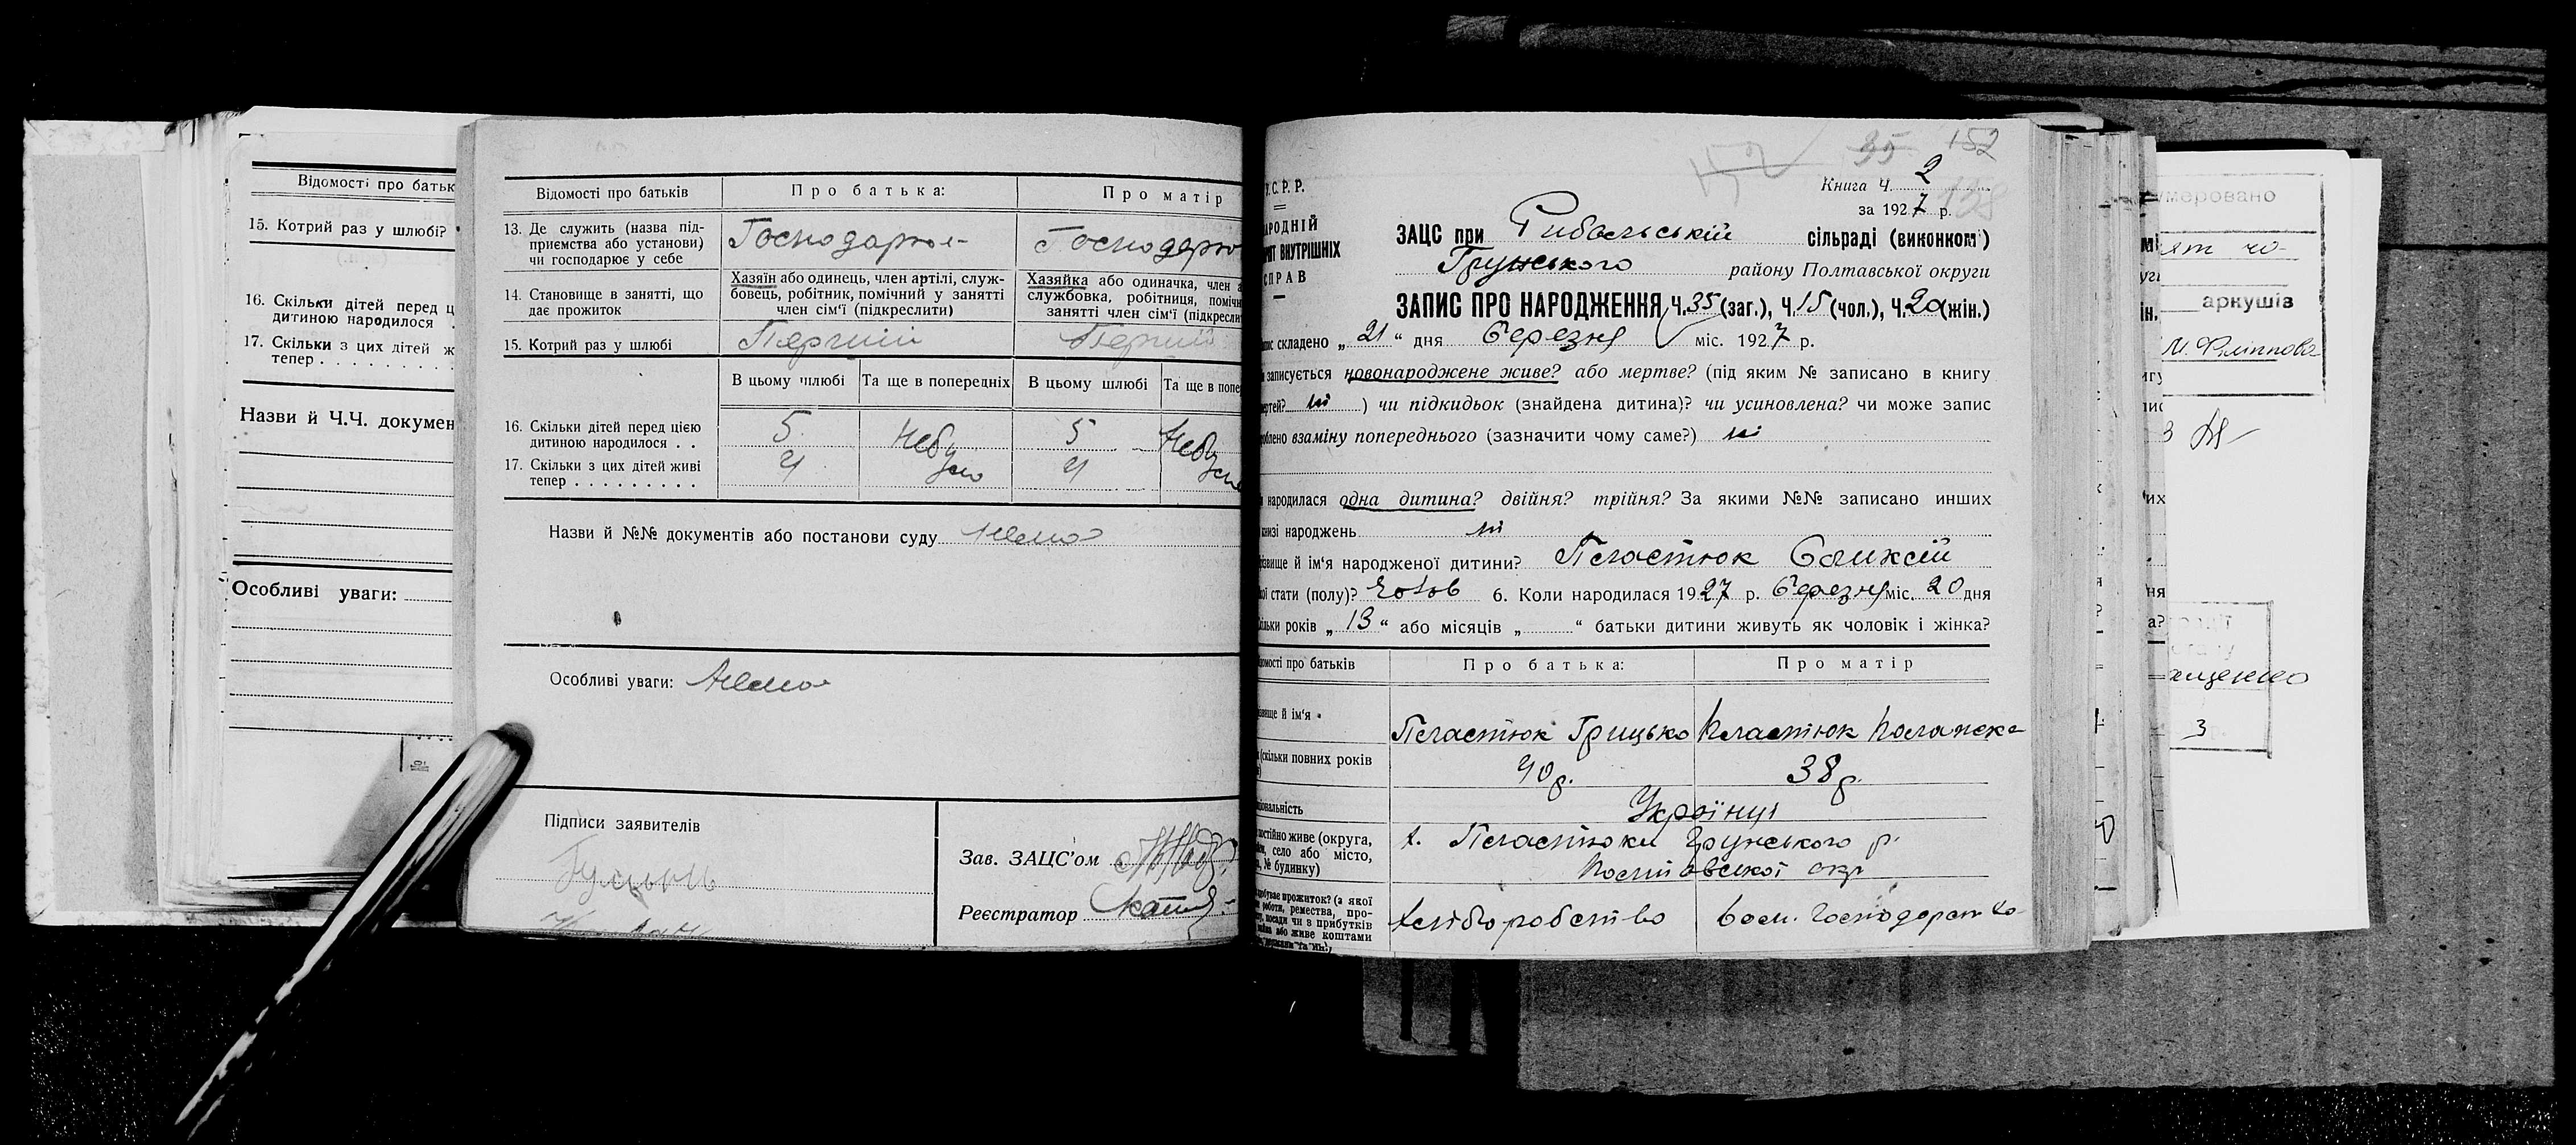 Відомості про батьк
15. Котрий раз у шлюбі?
16. Скільки дітей перед ц
дитиною народилося .
17. Скільки з цих дітей ж
тепер . . . . . . . . .
Назви й Ч.Ч. докумен
Особливі уваги:
Відомості про батьків
Про батька:
Про матір
13. Де служить (назва під-
приємства або установи)
чи господарює у себе
Господарює
Господарю
14. Становище в занятті, що
дає прожиток
Хазяїн або одинець, член артілі, служ-
бовець, робітник, помічний у занятті
член сім'ї (підкреслити)
Хазяйка або одиначка, член а
службовка, робітниця, поміч
занятті член сім'ї (підкресли
15. Котрий раз у шлюбі
Перший
Перший
В цьому шлюбі
Та ще в попередніх
В цьому шлюбі
Та ще в попе
16. Скільки дітей перед цією
дитиною народилося . .
5
Небу
5
Небу
17. Скільки з цих дітей живі
тепер . . . . . . . . .
4
ло
4
Назви й №№ документів або постанови суду Нема
Особливі уваги: Нема
Підписи заявителів
Зав. ЗАЦС'ом
Реєстратор
35 152
С. Р. Р.
Книга Ч. 2
за 1927 р.
АРОДНІЙ
ВНУТРІШНІХ
СПРАВ
ЗАЦС при Рибальській сільраді (виконком)
Грунського району Полтавської округи
ЗАПИС ПРО НАРОДЖЕННЯ Ч. 35 (заг.), Ч. 15 (чол.), Ч. 20 (жін.)
складено „ 21 “ дня Березня міс. 1927 р.
записується новонароджене живе? або мертве? (під яким № записано в книгу
ні ) чи підкидьок (знайдена дитина)? чи усиновлена? чи може запис
взаміну попереднього (зазначити чому саме?) ні
народилася одна дитина? двійня? трійня? За якими №№ записано инших
народжень ні
й ім'я народженої дитини? Пластюк Оликсій
стати (полу)? Чолов 6. Коли народилася 1927 р. Березня міс. 20 дня
років „ 13 “ або місяців „ “ батьки дитини живуть як чоловік і жінка?
про батьків
Про батька:
Про матір
й ім'я
Пластюк Грицько
Пластюк Палажка
(скільки повних років
40 р.
38 р.
Українці
постійно живе (округа,
село або місто,
№ будинку)
х. Пластюки Грунського р.
Полтавської окр
прожиток? (з якої
роботи, ремества, про-
посади чи з прибутків
або живе коштами
хліборобство
умеровано
аркушів
М. Філіппова
3